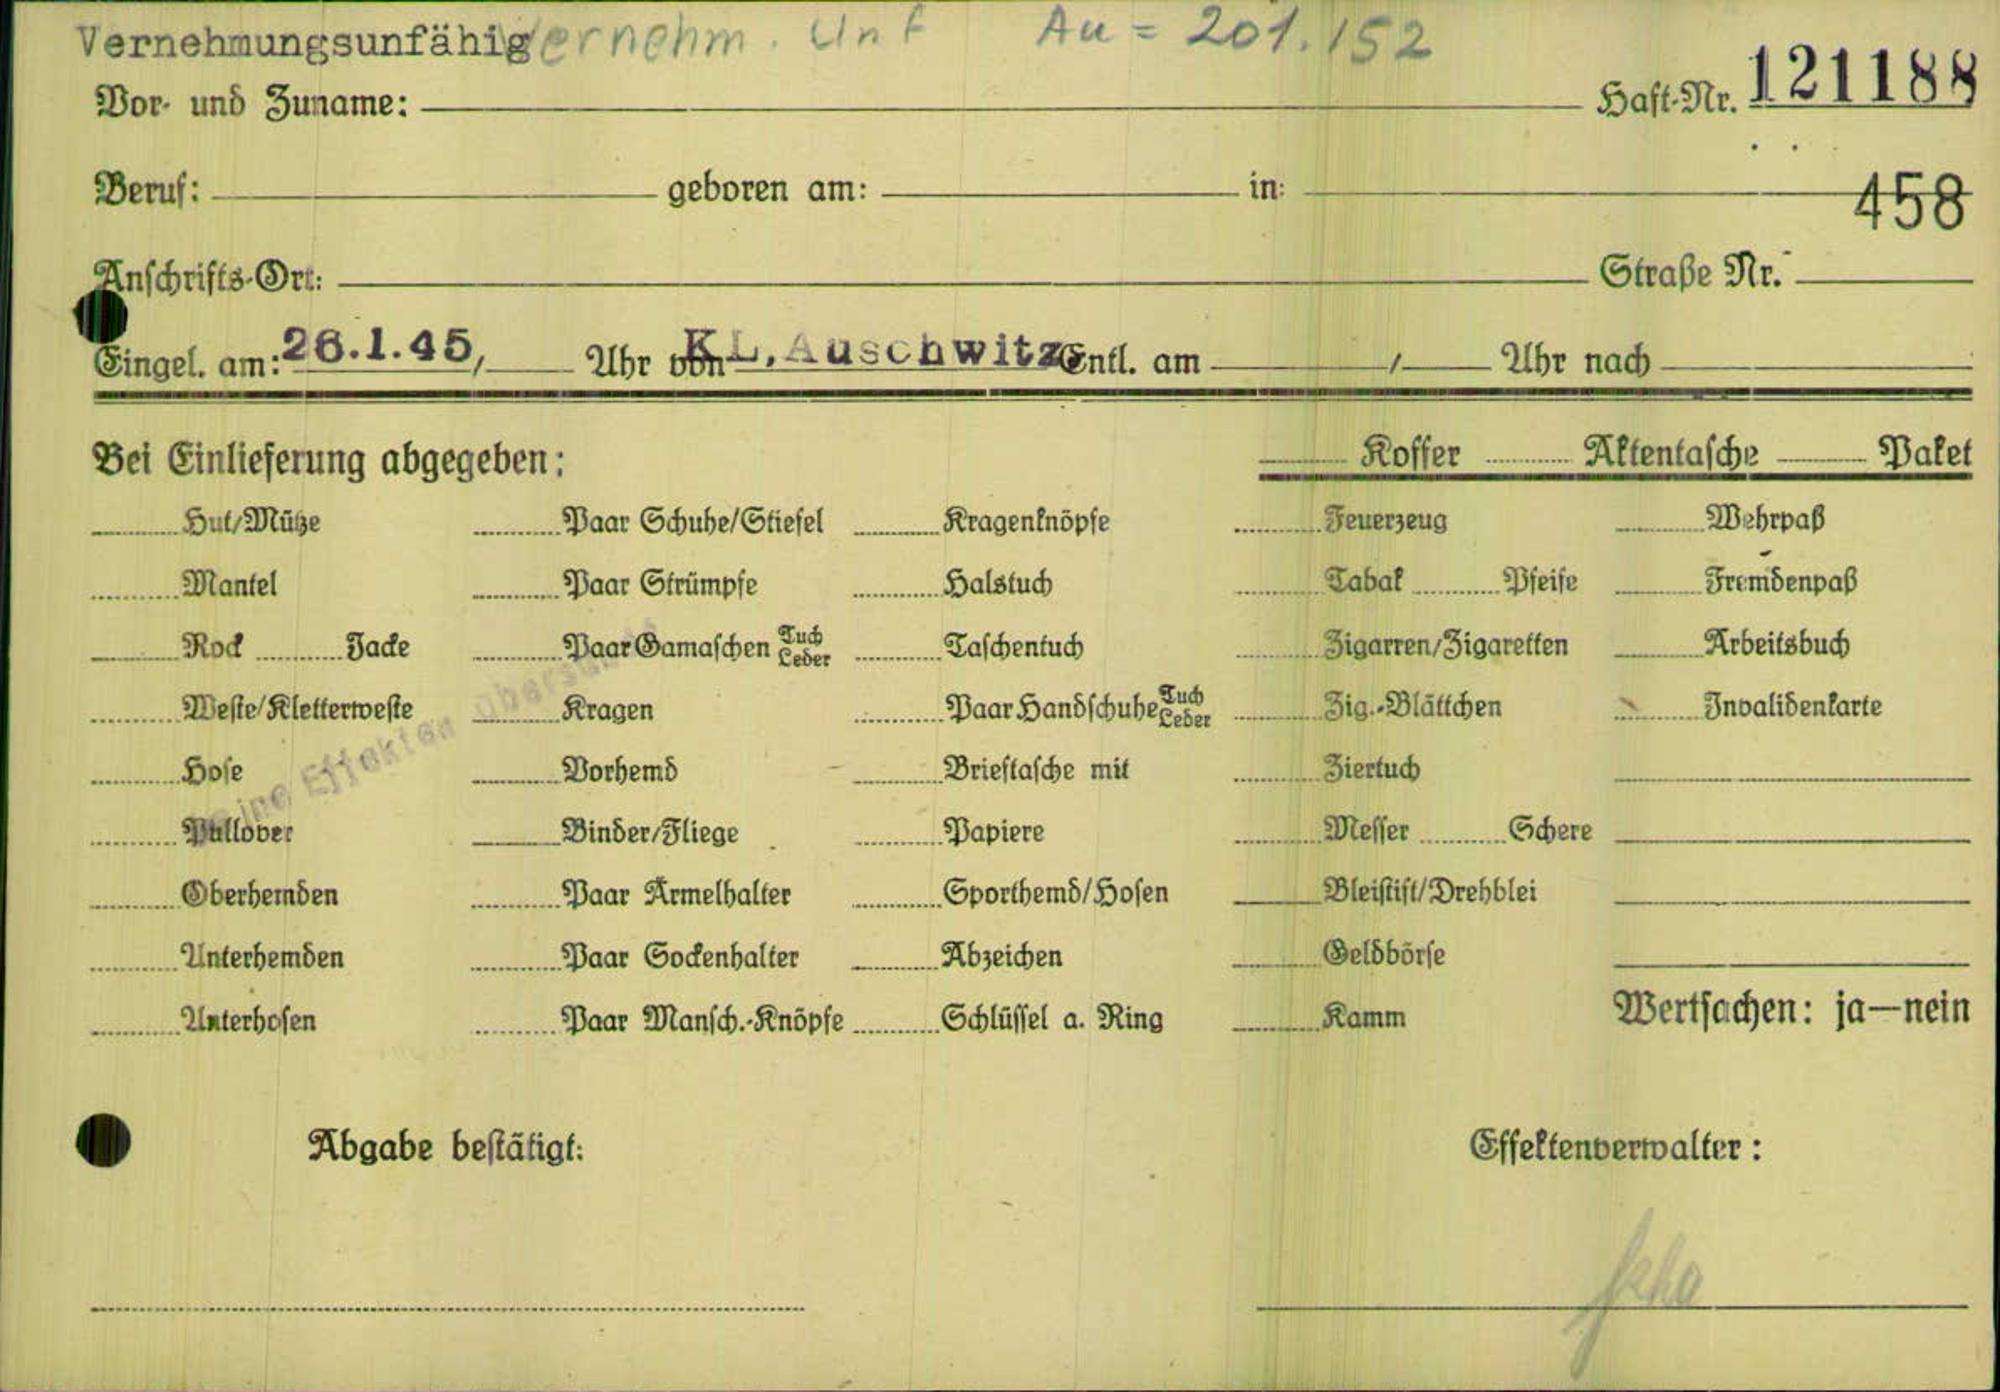 Vernehmungsunfähig Vernehm. Unf Au = 201.152
Vor- und Zuname: Haft-Nr. 121188
Beruf: geboren am: in: 458
Anschrifts-Ort: Straße Nr.
Eingel. am: 26.1.45, Uhr von KL. Auschwitz Entl. am / Uhr nach
Bei Einlieferung abgegeben: Koffer Aktentasche Paket
Hut/Mütze Paar Schuhe/Stiefel Kragenknöpfe Feuerzeug Wehrpaß
Mantel Paar Strümpfe Halstuch Tabak Pfeife Fremdenpaß
Rock Jacke Paar Gamaschen Tuch Leder Taschentuch Zigarren/Zigaretten Arbeitsbuch
Weste/Kletterweste Kragen Paar Handschuhe Tuch Leder Zig.-Blättchen Invalidenkarte
Hose Vorhemd Brieftasche mit Ziertuch
Pullover Binder/Fliege Papiere Messer Schere
Oberhemden Paar Ärmelhalter Sporthemd/Hosen Bleistift/Drehblei
Unterhemden Paar Sockenhalter Abzeichen Geldbörse
Unterhosen Paar Mansch.-Knöpfe Schlüssel a. Ring Kamm Wertsachen: ja—nein
Keine Effekten übersandt
Abgabe bestätigt: Effektenverwalter: